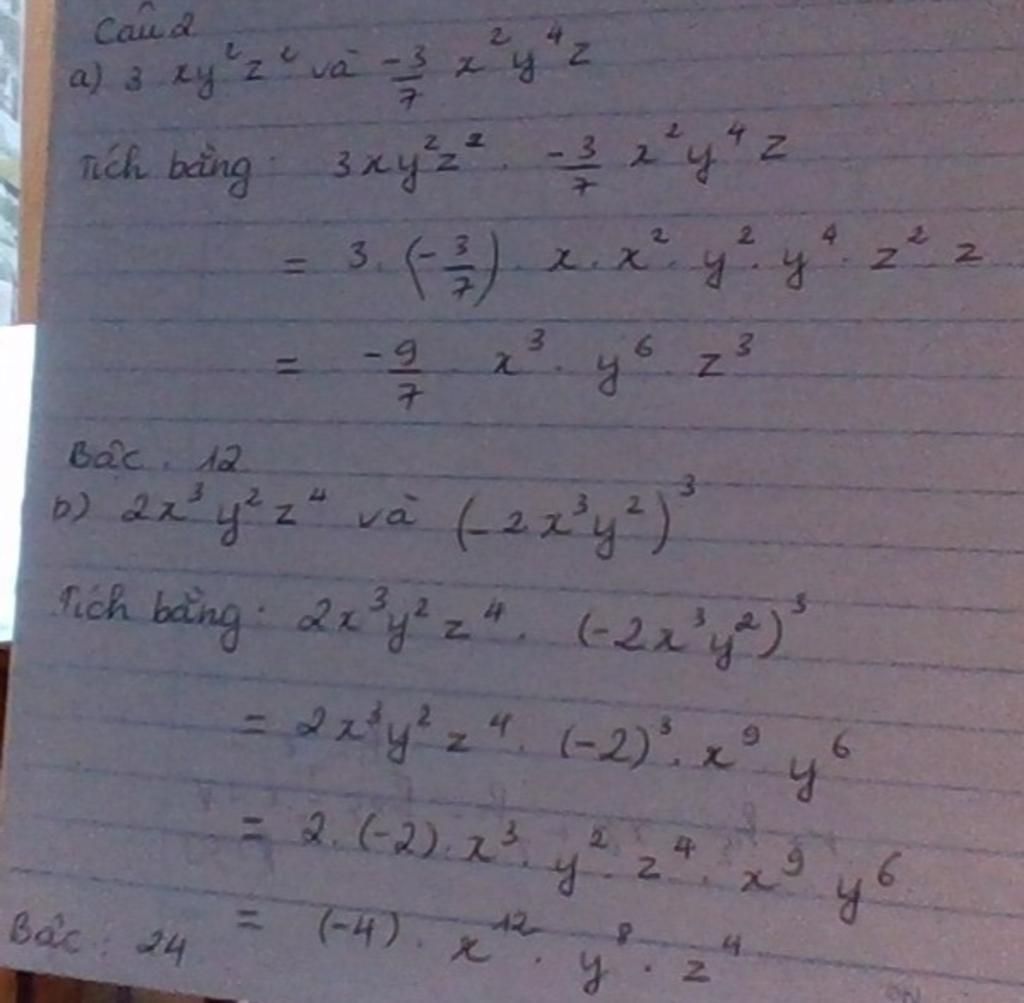 Câu 2
a) 3 xy²z² và -3/7 x²y⁴z
Tích bằng: 3xy²z² . -3/7 x²y⁴z
= 3 . (-3/7) . x . x² . y² . y⁴ . z² . z
= -9/7 x³ . y⁶ z³
Bậc : 12
b) 2x³y²z⁴ và (-2x³y²)³
Tích bằng: 2x³y²z⁴ . (-2x³y²)³
= 2x³y²z⁴ . (-2)³ . x⁹ y⁶
= 2 . (-2) . x³ . y² . z⁴ . x⁹ y⁶
= (-4) . x¹² . y⁸ . z⁴
Bậc : 24